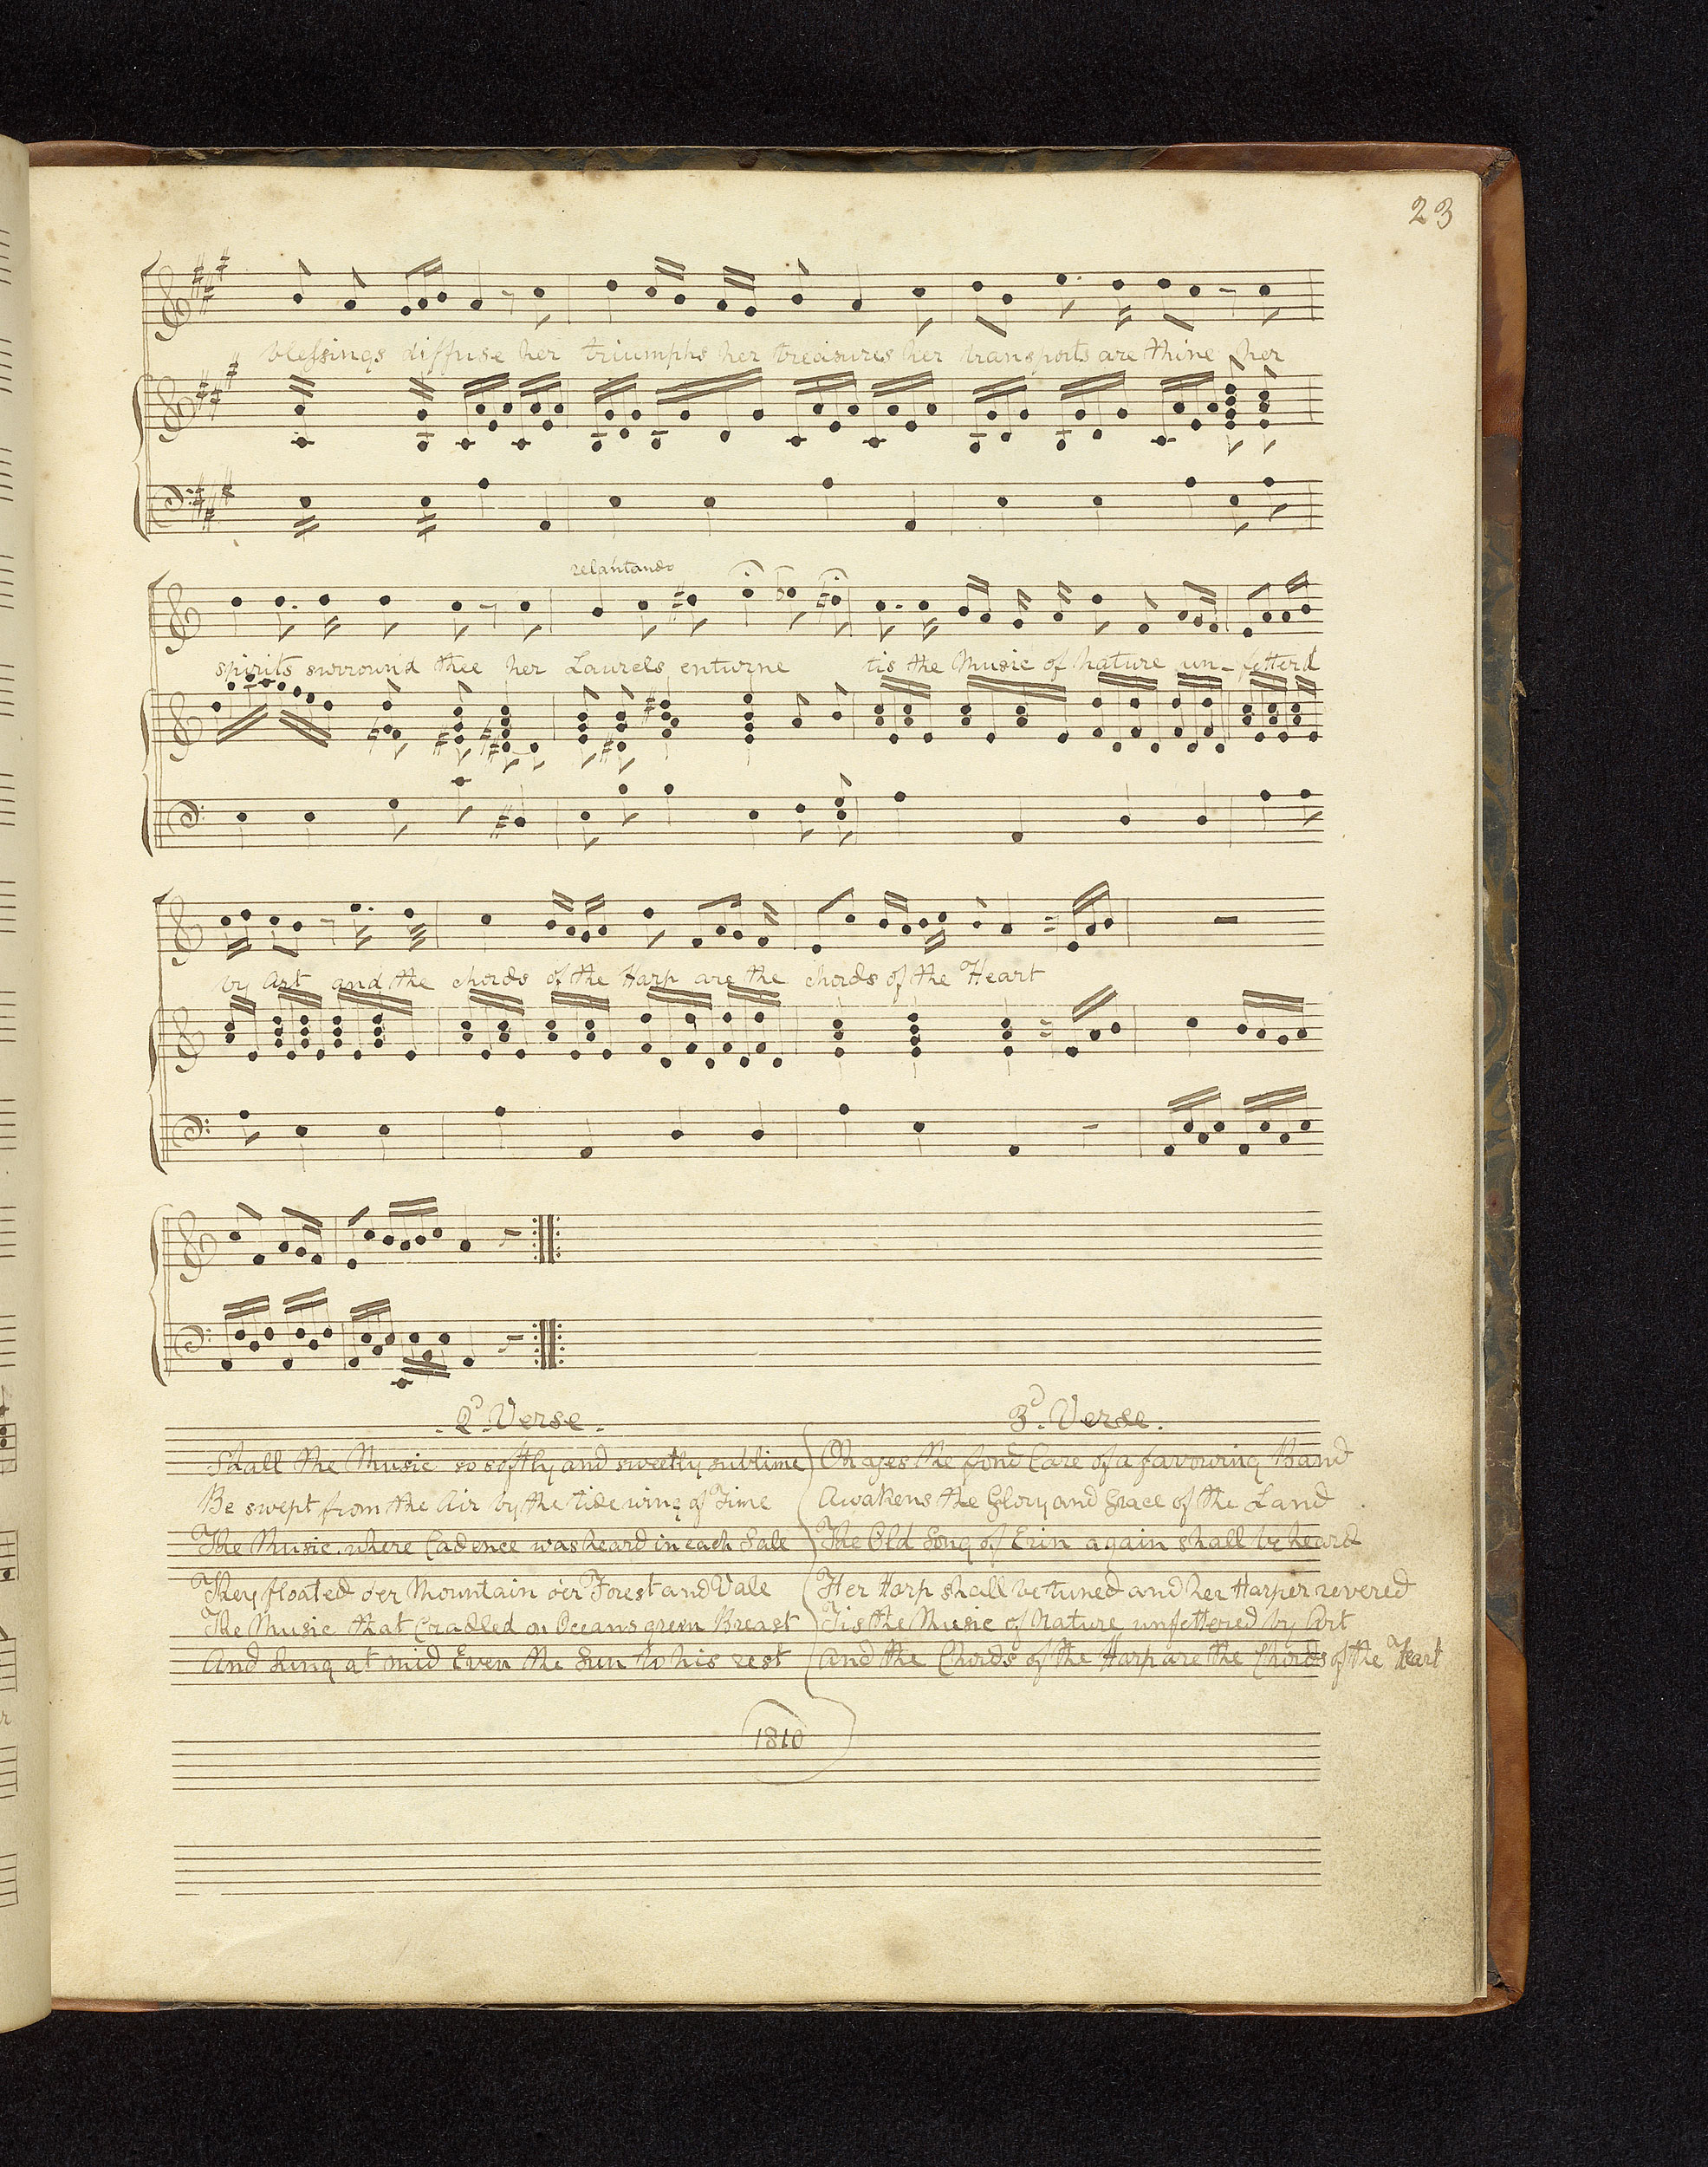 23
blessings diffuse her triumphs her treasures her transports are thine her
relantando
spirits surround thee her Laurels entwine tis the Music of Nature un-fetterd
by Art and the chords of the Harp are the chords of the Heart
2d. Verse.
Shall the Music so softly and sweetly sublime
Be swept from the Air by the tide wing of Time
The Music. where Cadence was heard in each Sale
They floated o'er Mountain o'er Forest and Vale
The Music that Cradled on Oceans green Breast
And Sung at mid Even the Sun to his rest
3d. Verse.
Oh ages the fond Care of a favouring Hand
Awakens the Glory and Grace of the Land
The Old Song of Erin again shall be heard
Her Harp shall be tuned and her Harper revered
Tis the Music of Nature unfettered by Art
And the Chords of the Harp are the Chords of the Heart
1810